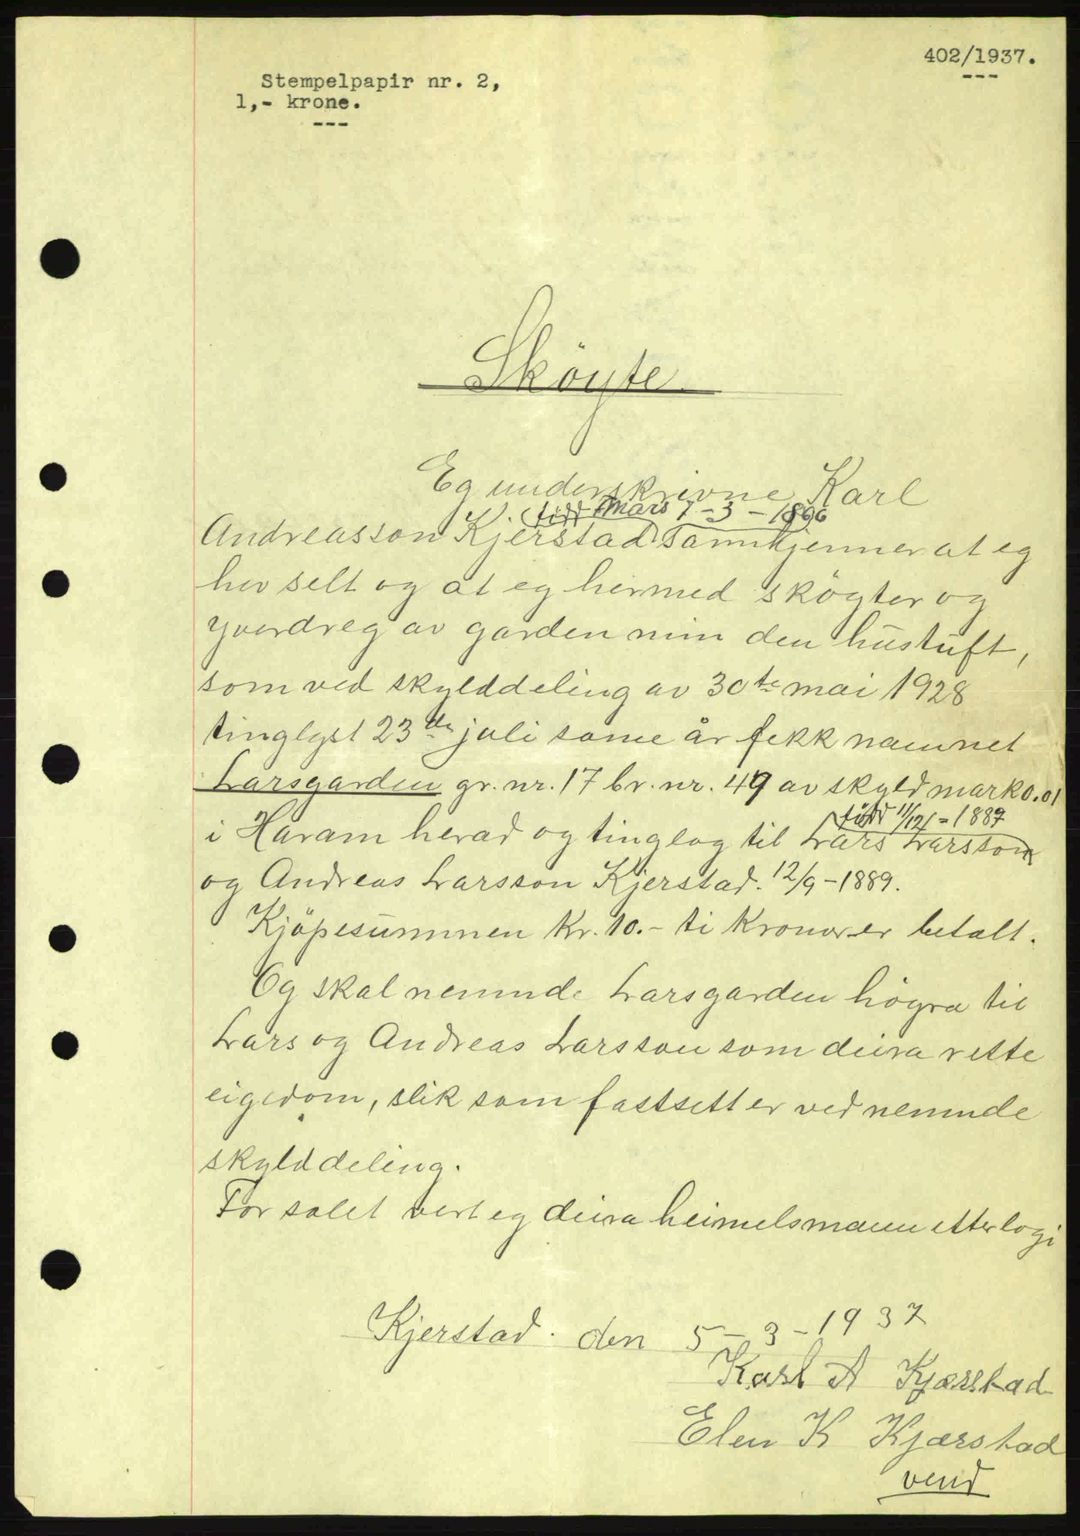 402/1937.
Stempelpapir nr. 2,
1,- krone.
Sköyte
Eg underskrivne Karl
född mars 1-3-1896
Andreasson Kjerstad sannkjenner at eg
hev selt og at eg hermed sköyter og
yverdreg av garden min den hustuft,
som ved skylddeling av 30te mai 1928
tinglyst 23de juli same år fekk namnet
Larsgarden gr. nr. 17 br. nr. 49 av skyld mark 0.01
född 11/12/-1887
i Haram herad og tinglag til Lars Larsson
og Andreas Larsson Kjerstad. 12/9-1889.
Kjöpesummen Kr. 10.- ti Kroner er betalt.
Og skal nemnde Larsgarden högra til
Lars og Andreas Larsson som deira rette
eigedom, slik som fastsett er ved nemnde
skylddeling.
For salet vert eg deira heimelsmann etter logi
Kjerstad. den 5-3-1937
Karl A Kjærstad
Elen K Kjærstad
vend